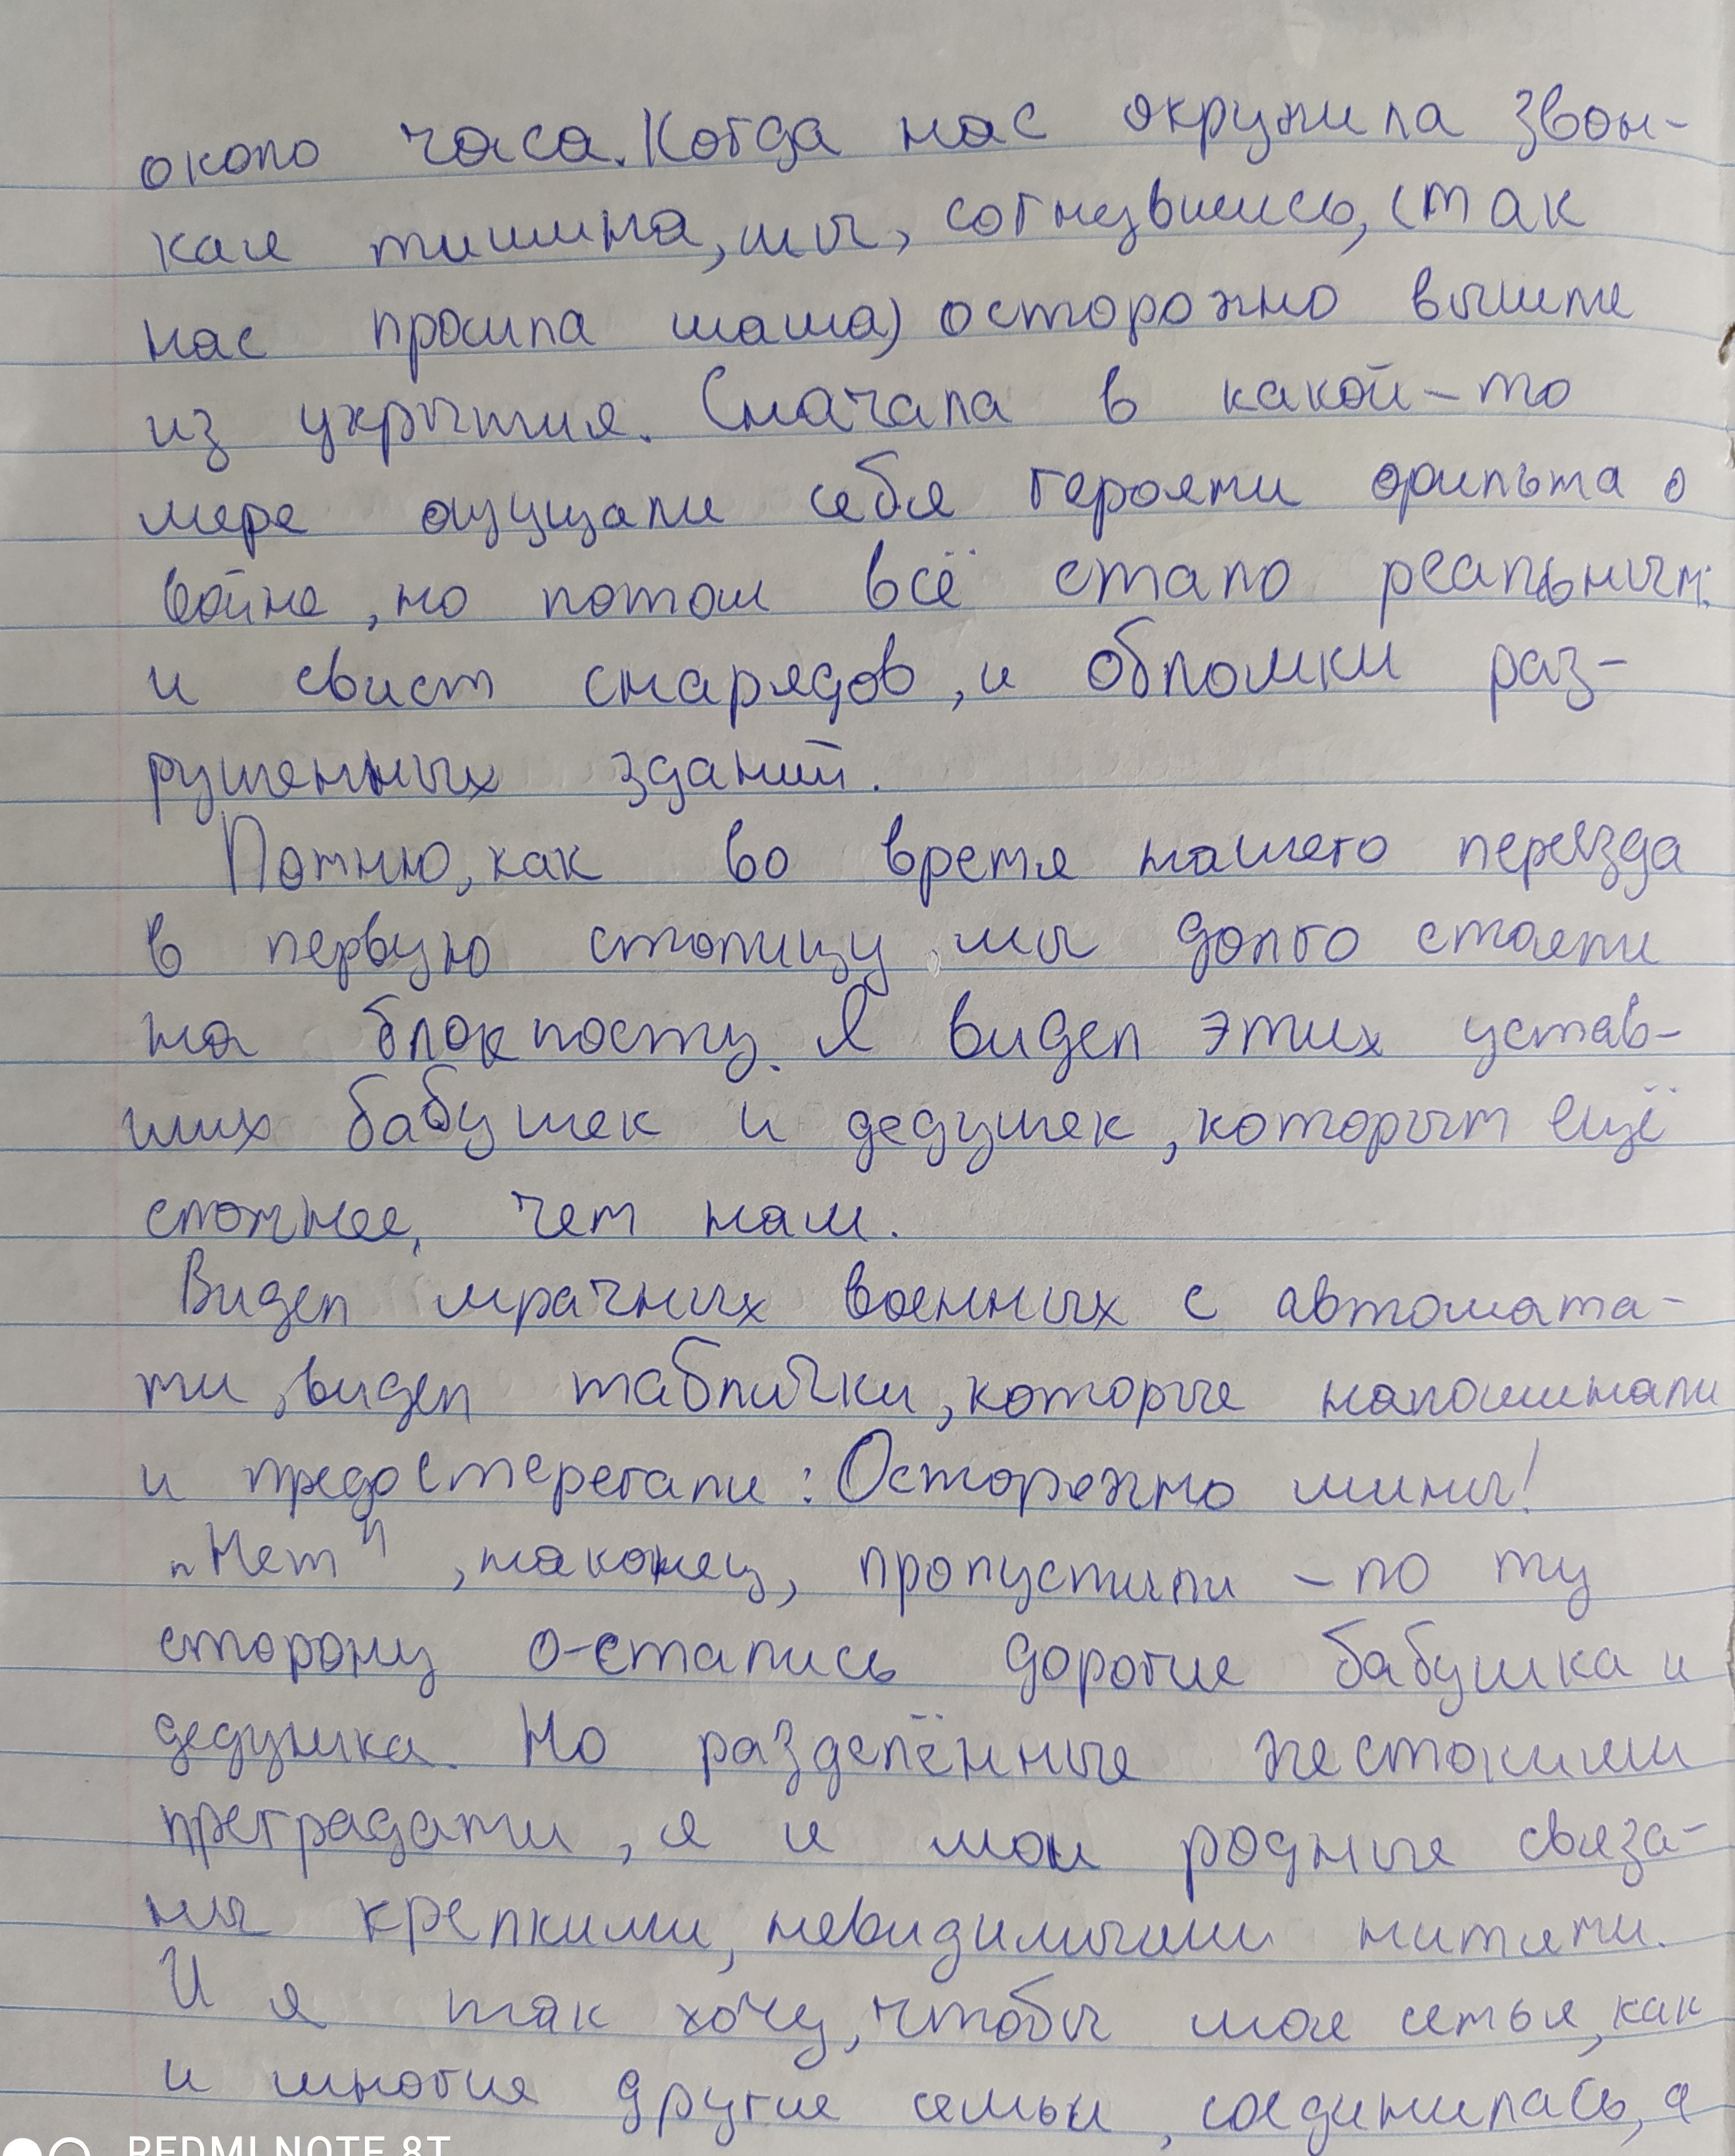 около часа. Когда нас окружила звон-
кая тишина, мы, согнувшись, (так
нас просила мама) осторожно вышли
из укрытия. Сначала в какой-то
мере ощущали себя героями фильма о
войне, но потом всё стало реальным:
и свист снарядов, и обломки раз-
рушенных зданий.
Помню, как во время нашего переезда
в первую столицу, мы долго стояли
на блокпосту. Я видел этих устав-
ших бабушек и дедушек, которым ещё
сложнее, чем нам.
Видел мрачных военных с автомата-
ми, видел таблички, которые напоминали
и предостерегали: Осторожно мины!
„Нет", наконец, пропустили - по ту
сторону о-стались дорогие бабушка и
дедушка. Но разделённые жестокими
преградами, я и мои родные связа-
ны крепкими, невидимыми нитями.
И я так хочу, чтобы моя семья, как
и многие другие семьи, соединилась, а
REDMI NOTE 8T